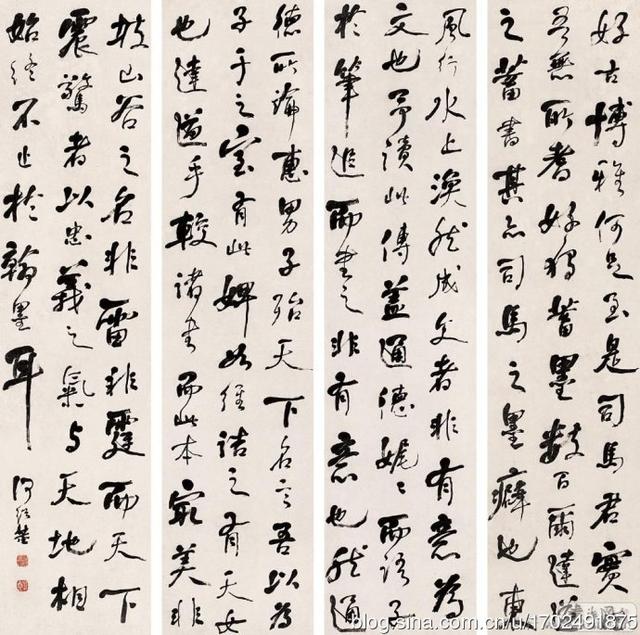 好古博雅何足至是司馬君實
吾無所耆好獨蓄墨數百爾達道
之蓄書其亦司馬之墨癖也東
風行水上渙然成文者非有意為
文也予讀此傳蓋通德娓〻而語子
於筆追而書之非有意也然通
德所論惠男子殆天下名言吾以為
子于之室有此婢如經詰之有天女
也達道手較諸書而此本最美非
坡山谷之名非雷非霆而天下
震驚者以忠義之氣与天地相
始終不止於翰墨耳 何紹基
blog.sina.com.cn/u/1702491875